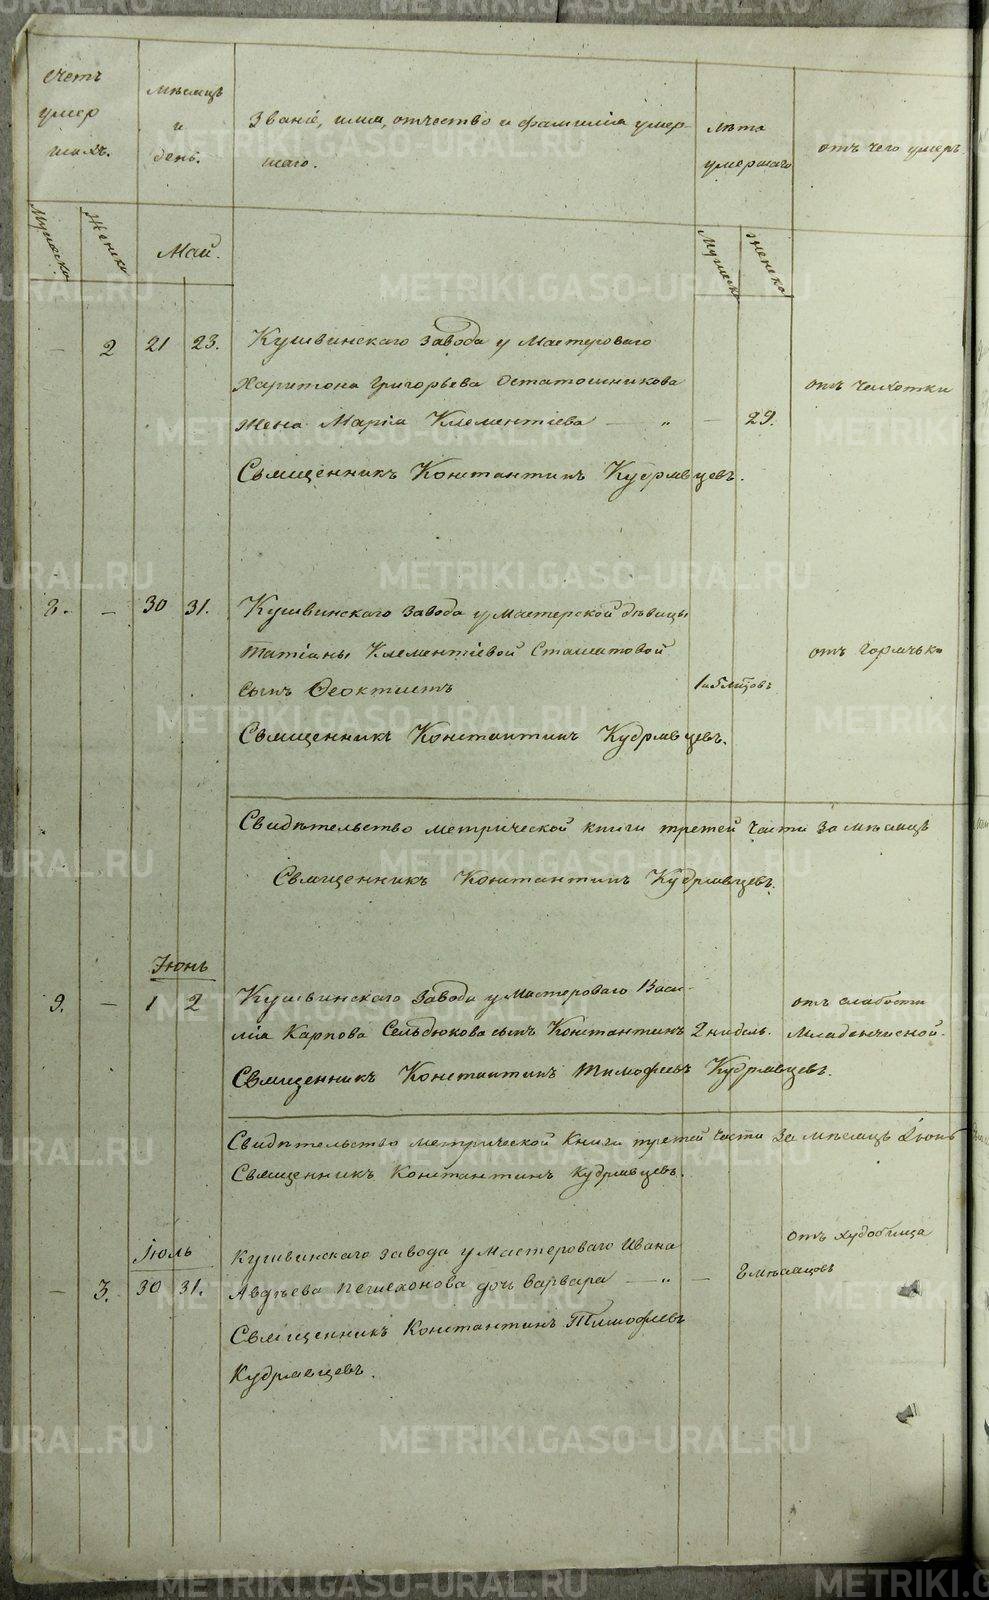 Счетъ
умер
шихъ.
Мѣсяцъ
и
день.
Званіе, имя, отчество и фамилія умер-
шаго.
Лѣта
умершаго
отъ чего умеръ.
Мужеска
Женска
Май.
Мужеска
Женска
— 2 21 23. Кушвинскаго завода у Мастероваго
Харитона Григорьева Остатошникова
жена Марія Клементіева — „ — 29.
отъ чахотки
Священникъ Константинъ Кудрявцевъ.
8. — 30 31. Кушвинскаго завода у Мастерской дѣвицы
Татіаны Клементіевой Стаматовой
сынъ Феоктистъ
отъ горячьки
Священникъ Константинъ Кудрявцевъ.
Свидѣтельство метрической книги третей части за мѣсяцъ
Священникъ Константинъ Кудрявцевъ.
Іюнь
9. — 1 2 Кушвинскаго завода у Мастероваго Васи-
лія Карпова Сельдюкова сынъ Константинъ 2 недель.
отъ слабости
Младенческой.
Священникъ Константинъ Тимофеевъ Кудрявцевъ.
Свидѣтельство метрической книги третей части за мѣсяцъ Іюнь
Священникъ Константинъ Кудрявцевъ.
Іюль
— 3. 30 31. Кушвинскаго завода у Мастероваго Ивана
Авдѣева Пешехонова дочь Варвара — „ — 8 мѣсяцовъ
отъ худобища
Священникъ Константинъ Тимофеевъ
Кудрявцевъ.
METRIKI.GASO-URAL.RU